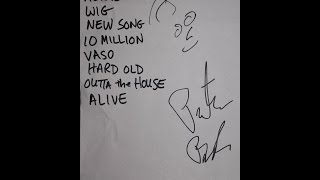 WIG
NEW SONG
10 MILLION
VASO
HARD OLD
OUTTA the HOUSE
ALIVE